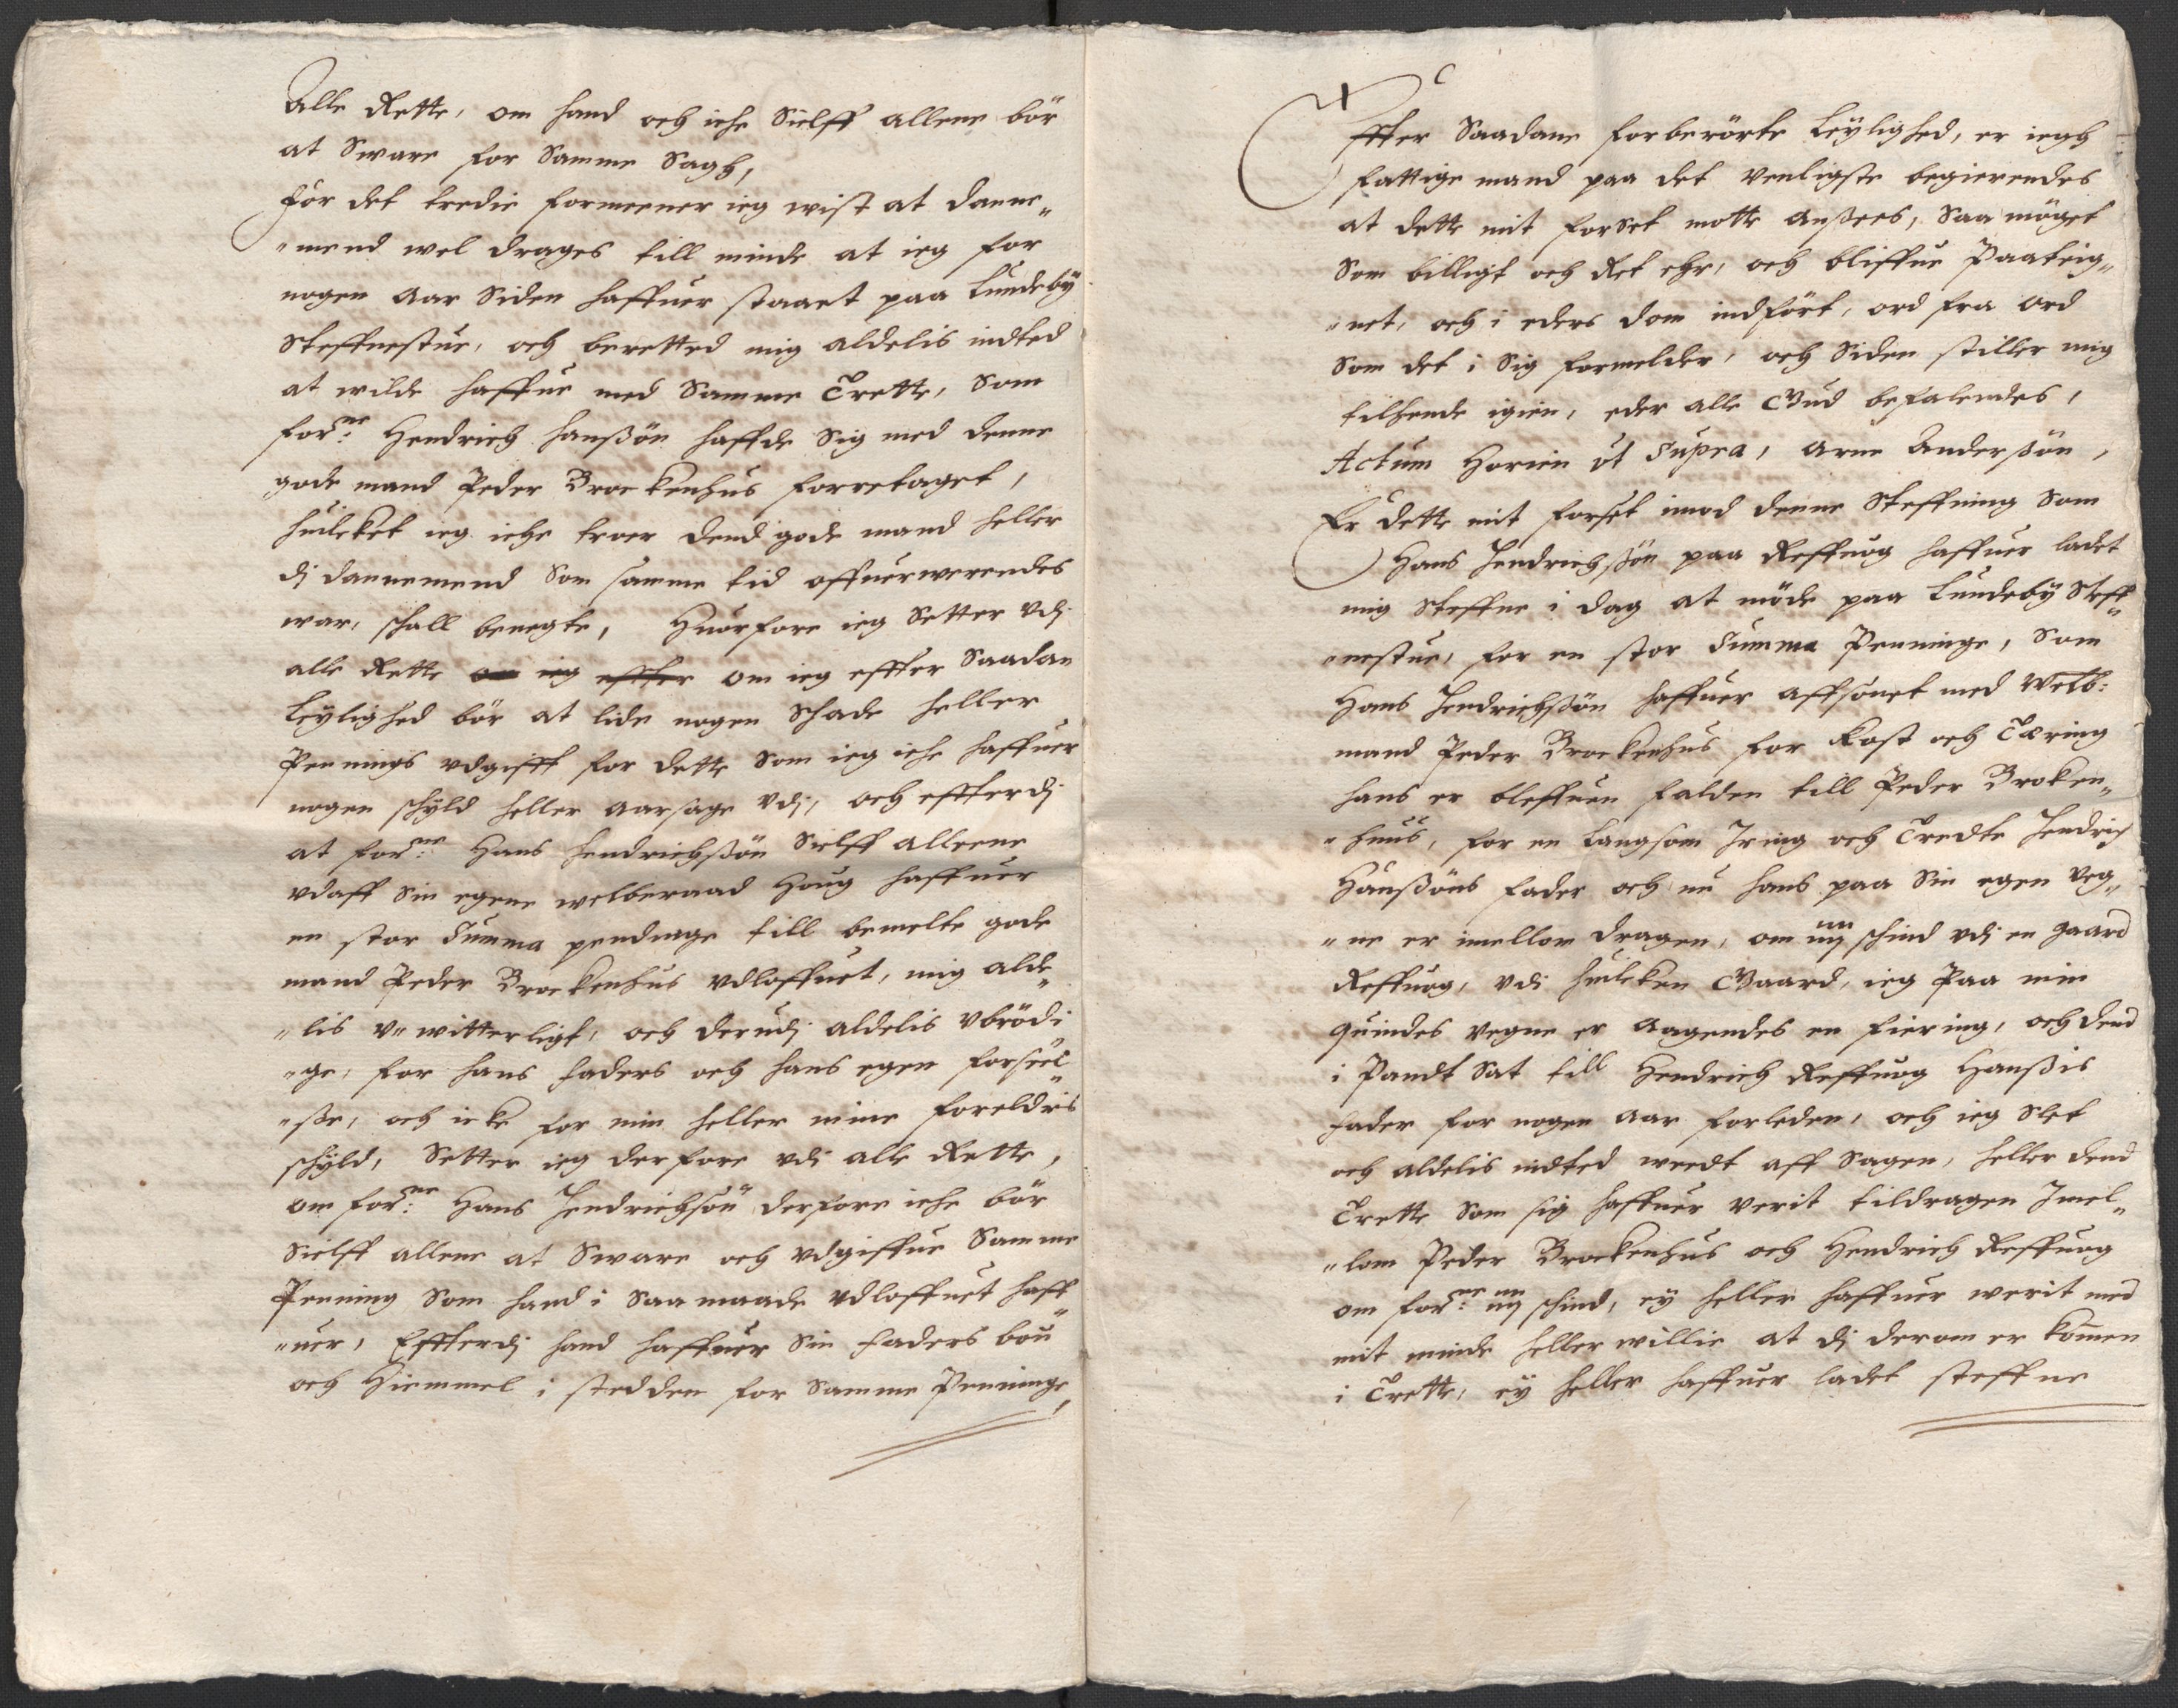 Alle Rette, om hand och iche Sielff allene bör
at Sware for Samme Sagh,
For det tredie formeener ieg wist at danne„
„mend wel drages till minde at ieg for
nogen aar Siden haffuer staaet paa Lundeby
Steffnestue, och beretted mig aldelis indted
at wilde haffue med Samme Trette, Som
forne: Hendrich Hanßön haffde Sig med denne
gode mand Peder Brockenhus forretaget,
huilcket ieg iche troer dend gode mand heller
di dannemend Som samme tid offuerwerendes
war, schall benegte, Huorfore ieg Setter udj
alle Rette om ieg effter om ieg effter Saadan
Leylighed bör at lide nogen Schade heller
Pennings udgifft for dette Som ieg iche haffuer
nogen schyld heller aarsage udj, och effterdj
at forne: Hans Hendrichßön Sielff alleene
udaff Sin egene welberaad Houg haffuer
en stor Summa pendinge till bemelte gode
mand Peder Brockenhus udloffuet, mig alde„
„lis u„witterligt, och derudj aldelis ubrödi
„ge, for hans faders och hans egen forseel„
„ße, och icke for min heller mine foreldris
schyld, Setter ieg derfore udi alle Rette,
om forne: Hans Hendrichsön derfore iche bör
Sielff allene at Sware och udgiffue Samme
Penning Som hand i Saa maade udloffuet haff„
„uer, Effterdj hand haffuer Sin faders bou
och Hiemmel i stedden for Samme Penninge,
Effter Saadane forberörte Leylighed, er iegh
fattige mand paa det venligste begierendes
at dette mit forset motte anßees, Saa möget
Som billigt och Ret ehr, och bliffue Paateig„
„net, och i eders dom indfört, ord fra ord
Som det i Sig formelder, och Siden stiller mig
tilhende igien, eder alle Gud befalendes,
Actum Hornin ut Supra, Arne Anderßön,
Er dette mit forset imod denne Steffning Som
Hans Hendrichßön paa Reffuog haffuer ladet
mig Steffne i dag at möde paa Lundeby Steff„
„nestue, for en stor Summa Penninge, Som
Hans Hendrichßön haffuer affsonet med Welb:
mand Peder Brockenhus for Kost och Tæring
hans er bleffuen falden till Peder Brocken„
„huus, for en Langsom Iring och Tredte Hendrich
Hanßöns fader och nu hans paa Sin egen Veg„
„ne er imellom dragen, om iiij schind udj en gaard
Reffuog, udi huilcken Gaard, ieg Paa min
quindes vegne er aagendes en fiering, och dend
i Pandt Sat till Hendrich Reffuog Hanßis
fader for nogen aar forleden, och ieg Slet
och aldelis indted weedt aff Sagen, heller dend
Trette Som sig haffuer verit tildragen Imel„
„lom Peder Brockenhus och Hendrich Reffuog
om forne: iiij schind, ey heller haffuer werit med
mit minde heller willie at dj derom er komen
i Trette, ey heller haffuer ladet steffne